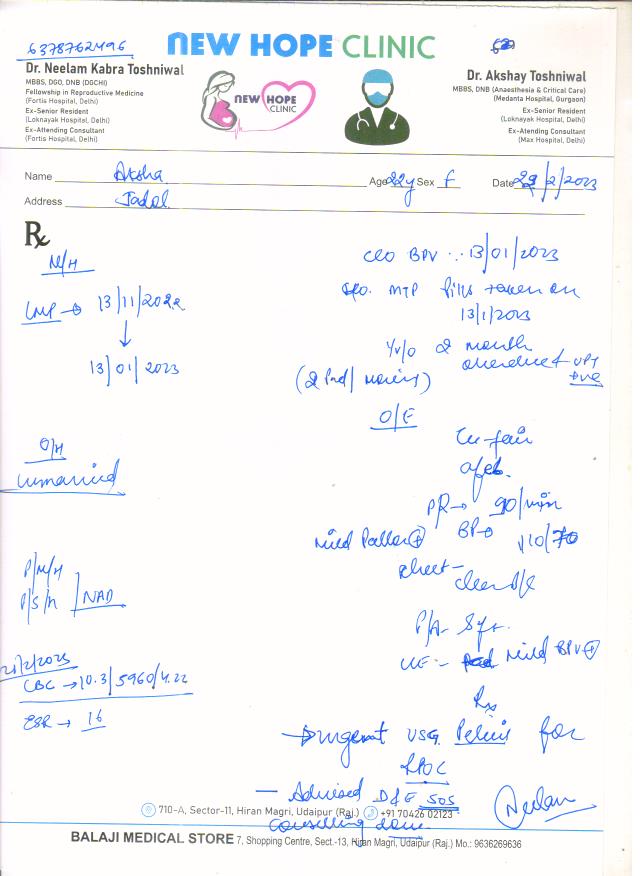 6378762496
NEW HOPE CLINIC
Dr. Neelam Kabra Toshniwal
MBBS, DGO, DNB (DGCHI)
Fellowship in Reproductive Medicine
(Fortis Hospital, Delhi)
Ex-Senior Resident
(Loknayak Hospital, Delhi)
Ex-Attending Consultant
(Fortis Hospital, Delhi)
NEW HOPE
CLINIC
Dr. Akshay Toshniwal
MBBS, DNB (Anaesthesia & Critical Care)
(Medanta Hospital, Gurgaon)
Ex-Senior Resident
(Loknayak Hospital, Delhi)
Ex-Attending Consultant
(Max Hospital, Delhi)
Name Aksha Age 22y Sex F Date /2/2023
Address
Rx
M/H
LMP → 13/11/2022
↓
13/01/2023
O/H
unmarried
P/M/H
P/S/H ] NAD
21/2/2023
CBC → 10.3/5960/4.22
ESR → 16
C/O BPV ∴ 13/01/2023
H/o. MTP Pills taken on
13/1/2023
H/o 2 month
overdue UPT
+ve
(2 Pad/
O/E
GC fair
afeb.
PR → 90/min
mild Pallor ⊕ BP → 110/70
chest -
clear B/L
P/A - Soft.
mild BPV ⊕
Rx
→ urgent USG Pelvis for
RPOC
— Advised D&E SOS
counselling done
Neelam
710-A, Sector-11, Hiran Magri, Udaipur (Raj.) +91 70426 02123
BALAJI MEDICAL STORE 7, Shopping Centre, Sect.-13, Hiran Magri, Udaipur (Raj.) Mo.: 9636269636